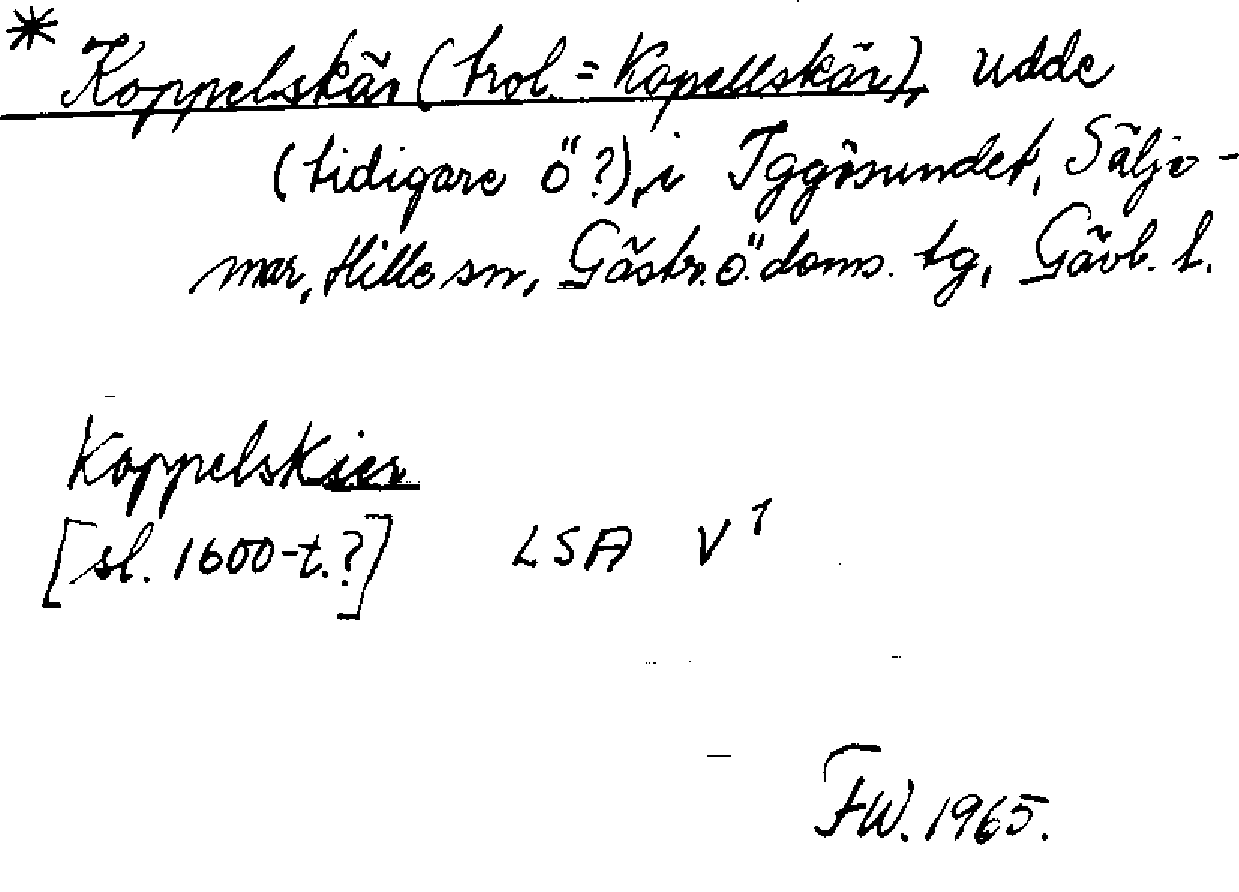 * Koppelskär (trol. = Kapellskär), udde
(tidigare ö?), i Iggösundet, Säljö-
mar, Hille sn, Gästr. ö. doms. tg, Gävl. l.
Koppelskier
[sl. 1600-t.?] LSA V 1
FW. 1965.